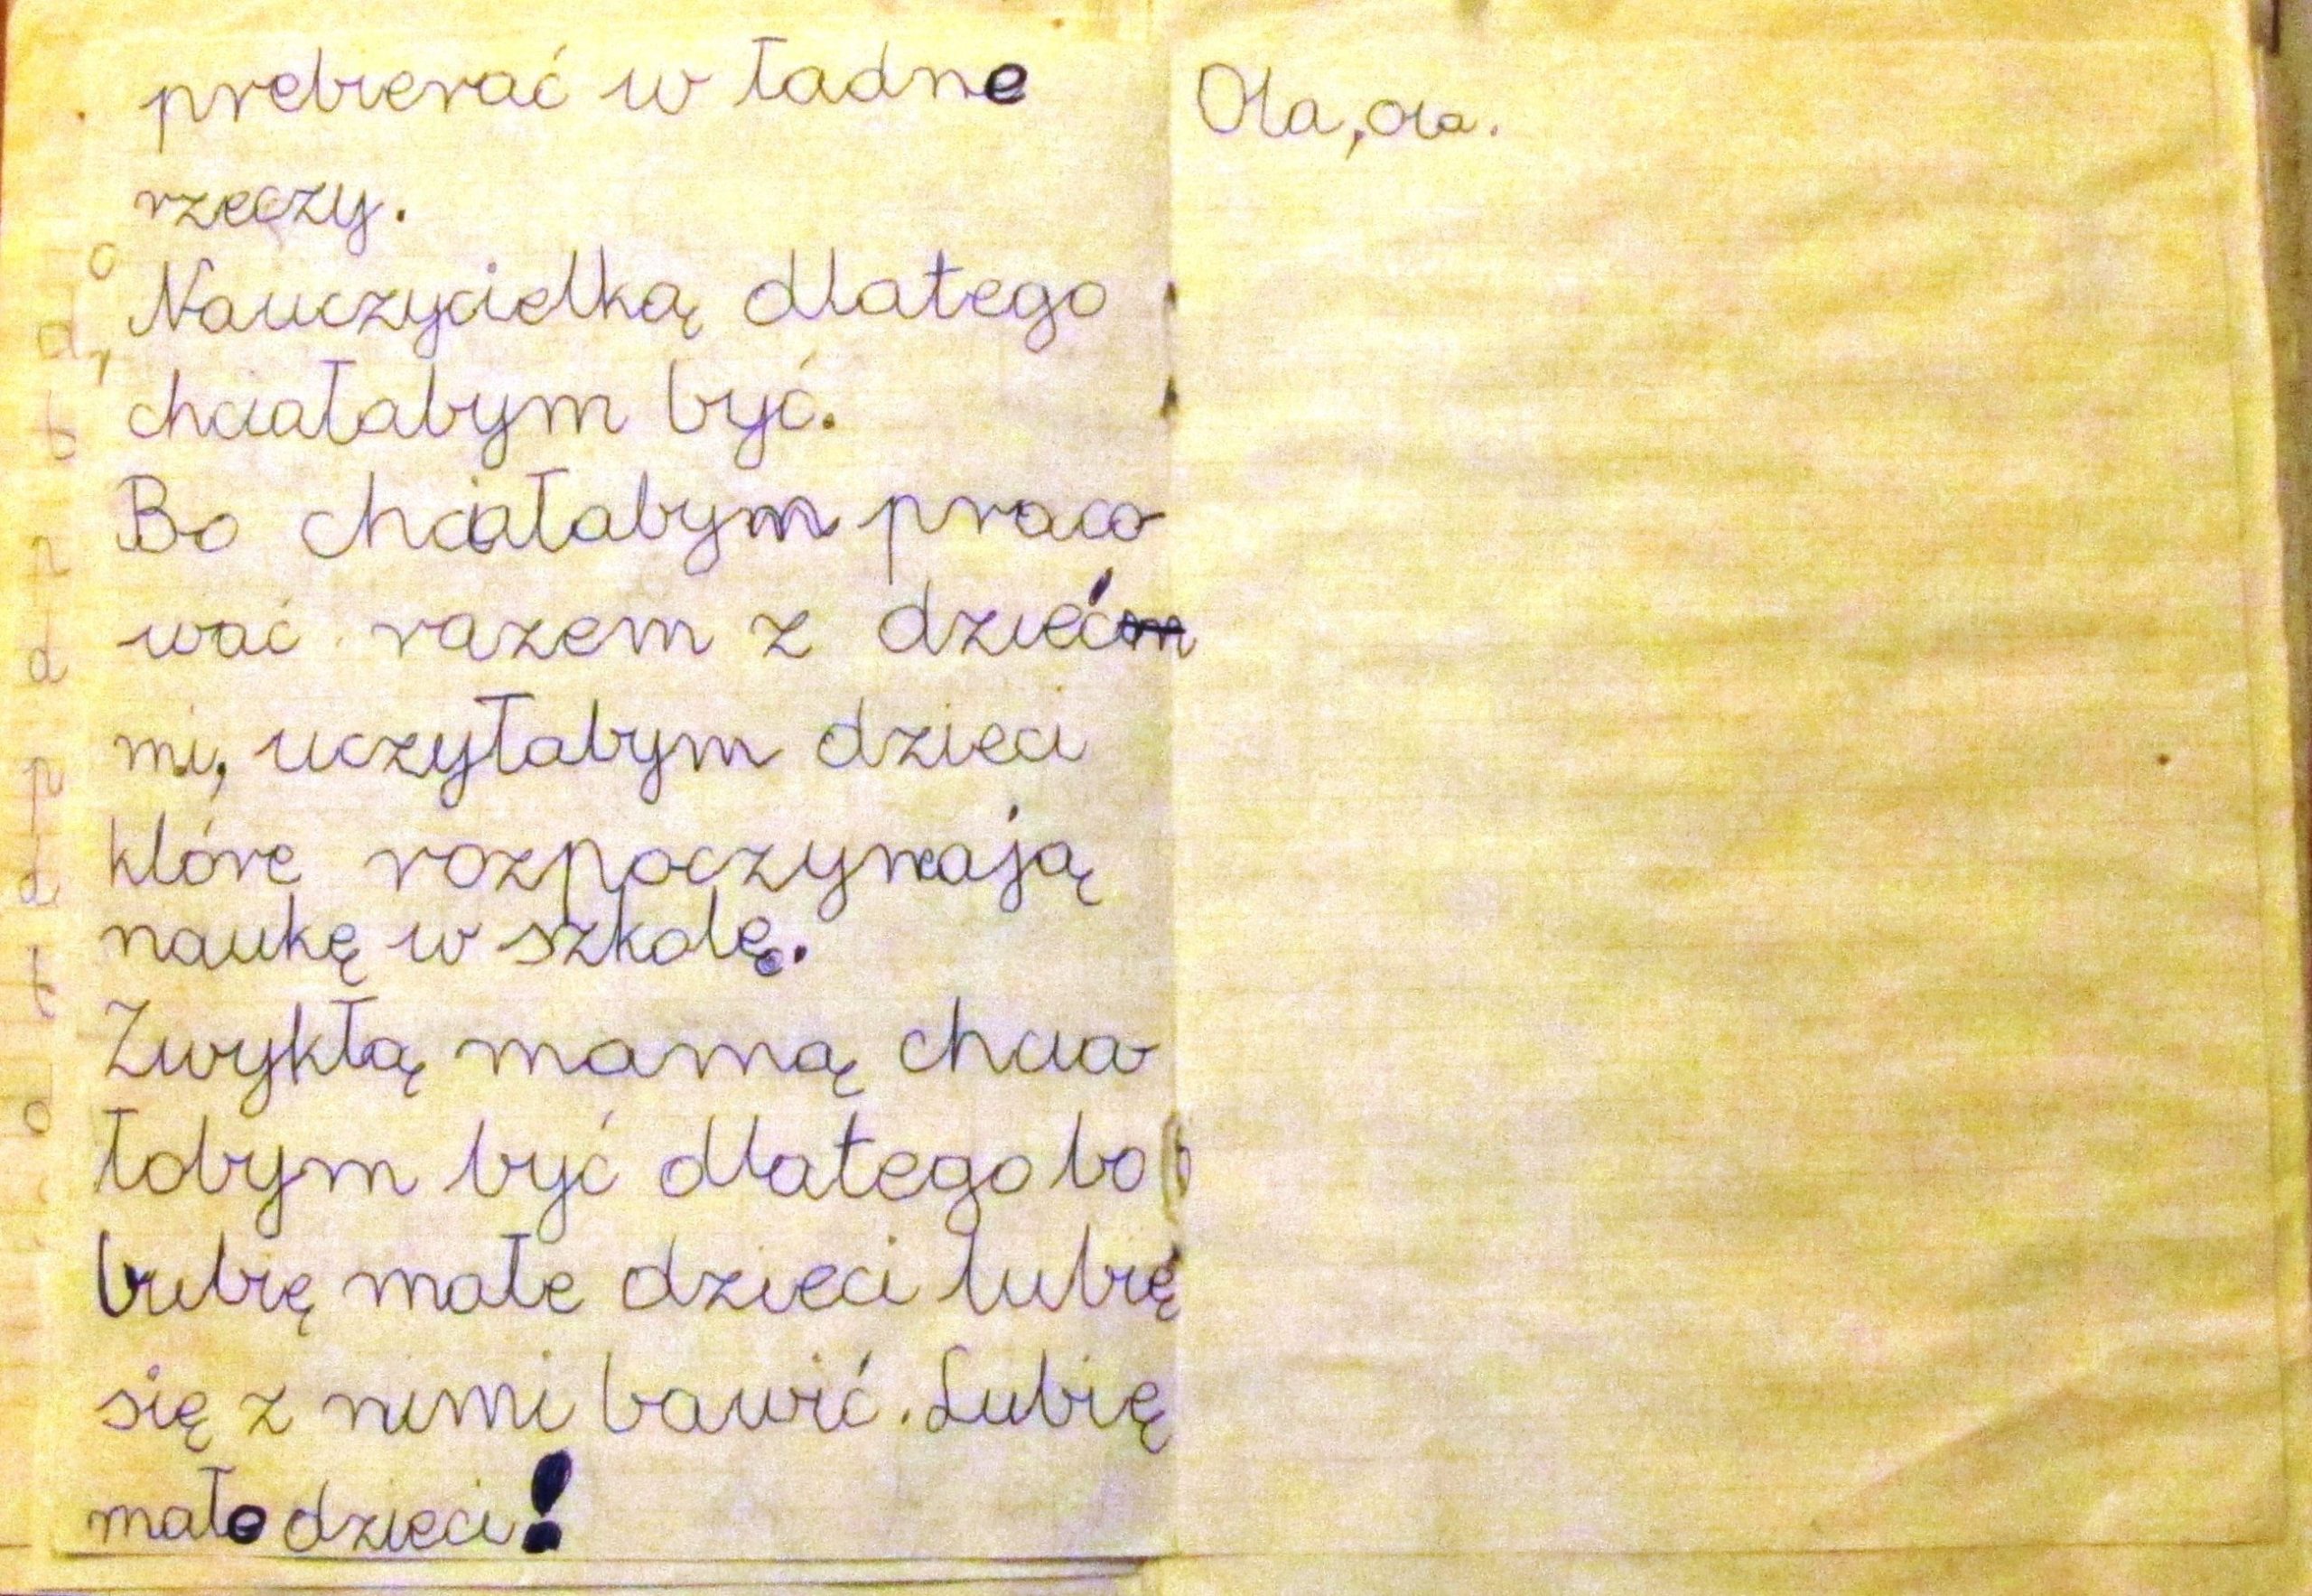 prebierać w ładne
rzeczy.
Nauczycielką dlatego
chciałabym być.
Bo chciałabym praco
wać razem z dzieć
mi, uczyłabym dzieci
klóre rozpoczynają
naukę w szkolę.
Zwykłą mamą chcia
łobym być dlatego bo
lubię małe dzieci lubię
się z nimi bawić. Lubię
małe dzieci!
Ola, Ola.